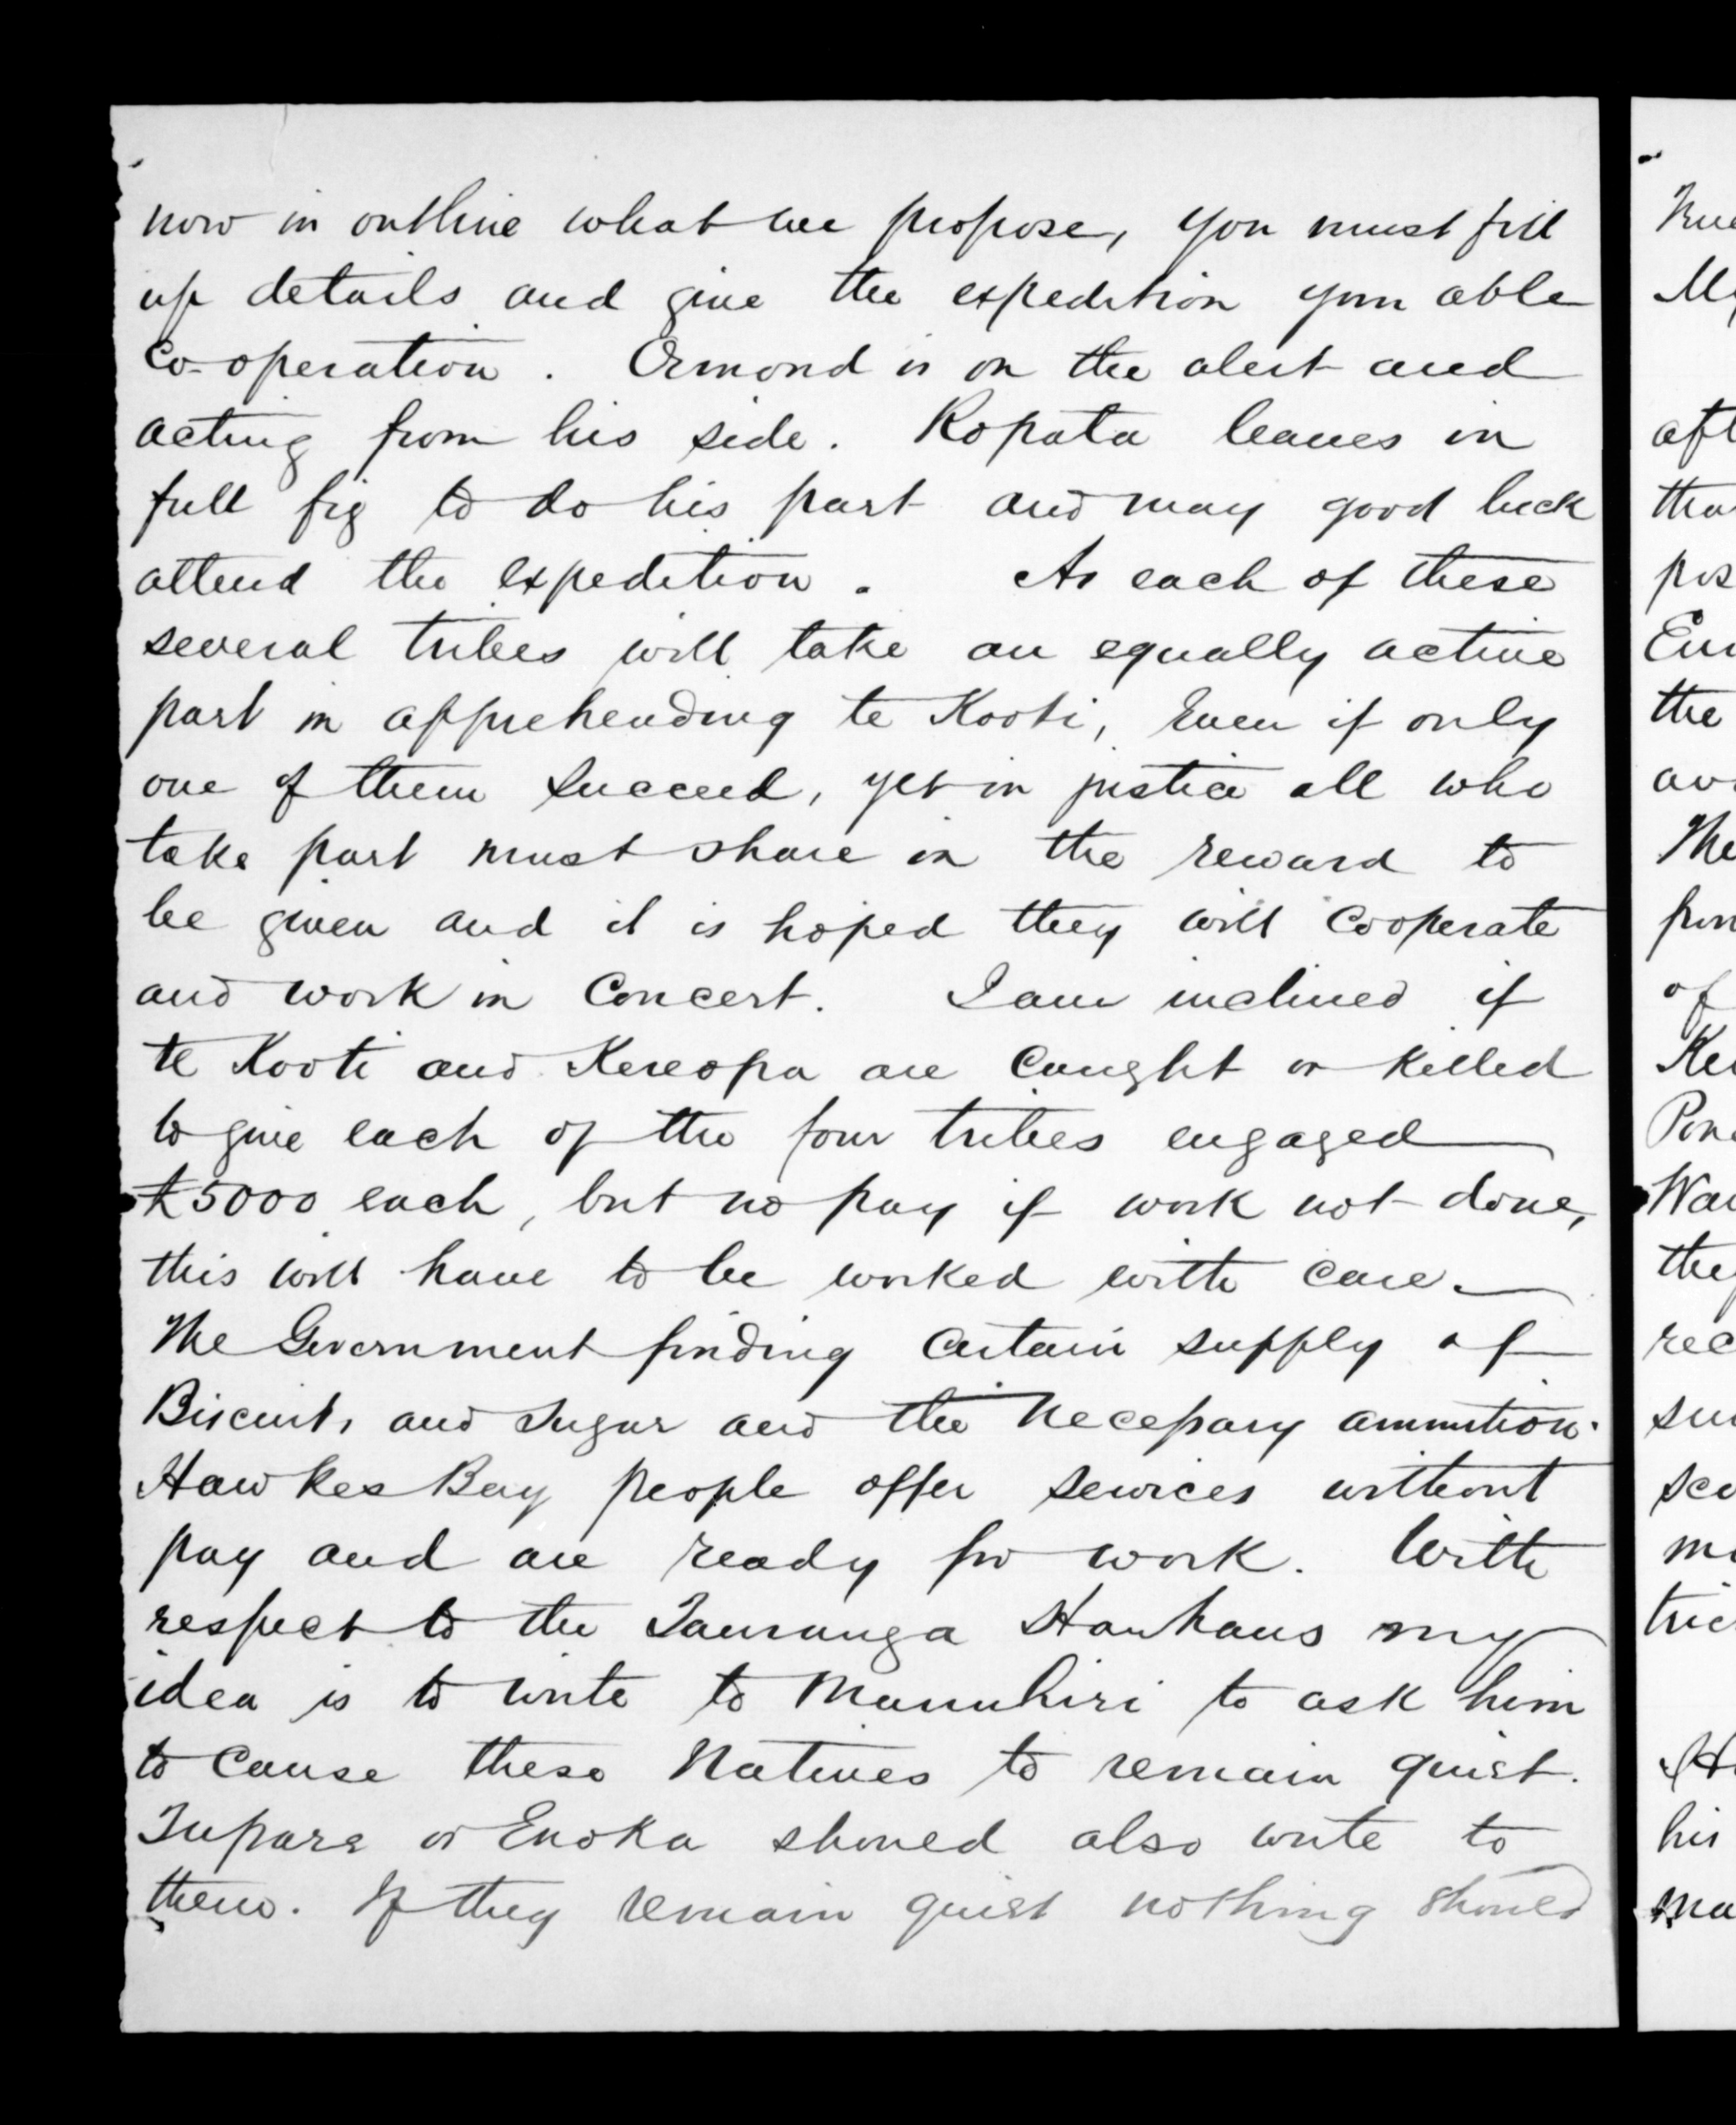 now in outline what we propose, you must fill
up details and give the expedition your able
Co-operation. Ormond is on the alert and
acting from his side. Ropata leaves in
full fig to do his part and may good luck
attend the expedition. As each of these
several tribes will take an equally active
part in apprehending te Kooti, Even if only
one of them succeed, yet in justice all who
take part must share in the reward to
be given and it is hoped they will Cooperate
and work in Concert. I am inclined if
te Kooti and Kereopa are Caught or killed
to give each of the four tribes engaged
£5000 each, but no pay if work not done,
this will have to be worked with care.
The Government finding Certain supply of
Biscuits and Sugar and the Necessary ammution.
Hawkes Bay people offer services without
pay and are ready for work. With
respect to the Tauranga Hauhaus my
idea is to write to Manuhiri to ask him
to Cause these Natives to remain quiet.
Tupara or Enoka should also write to
them. If they remain quiet nothing should
My
the
The
of
they
his